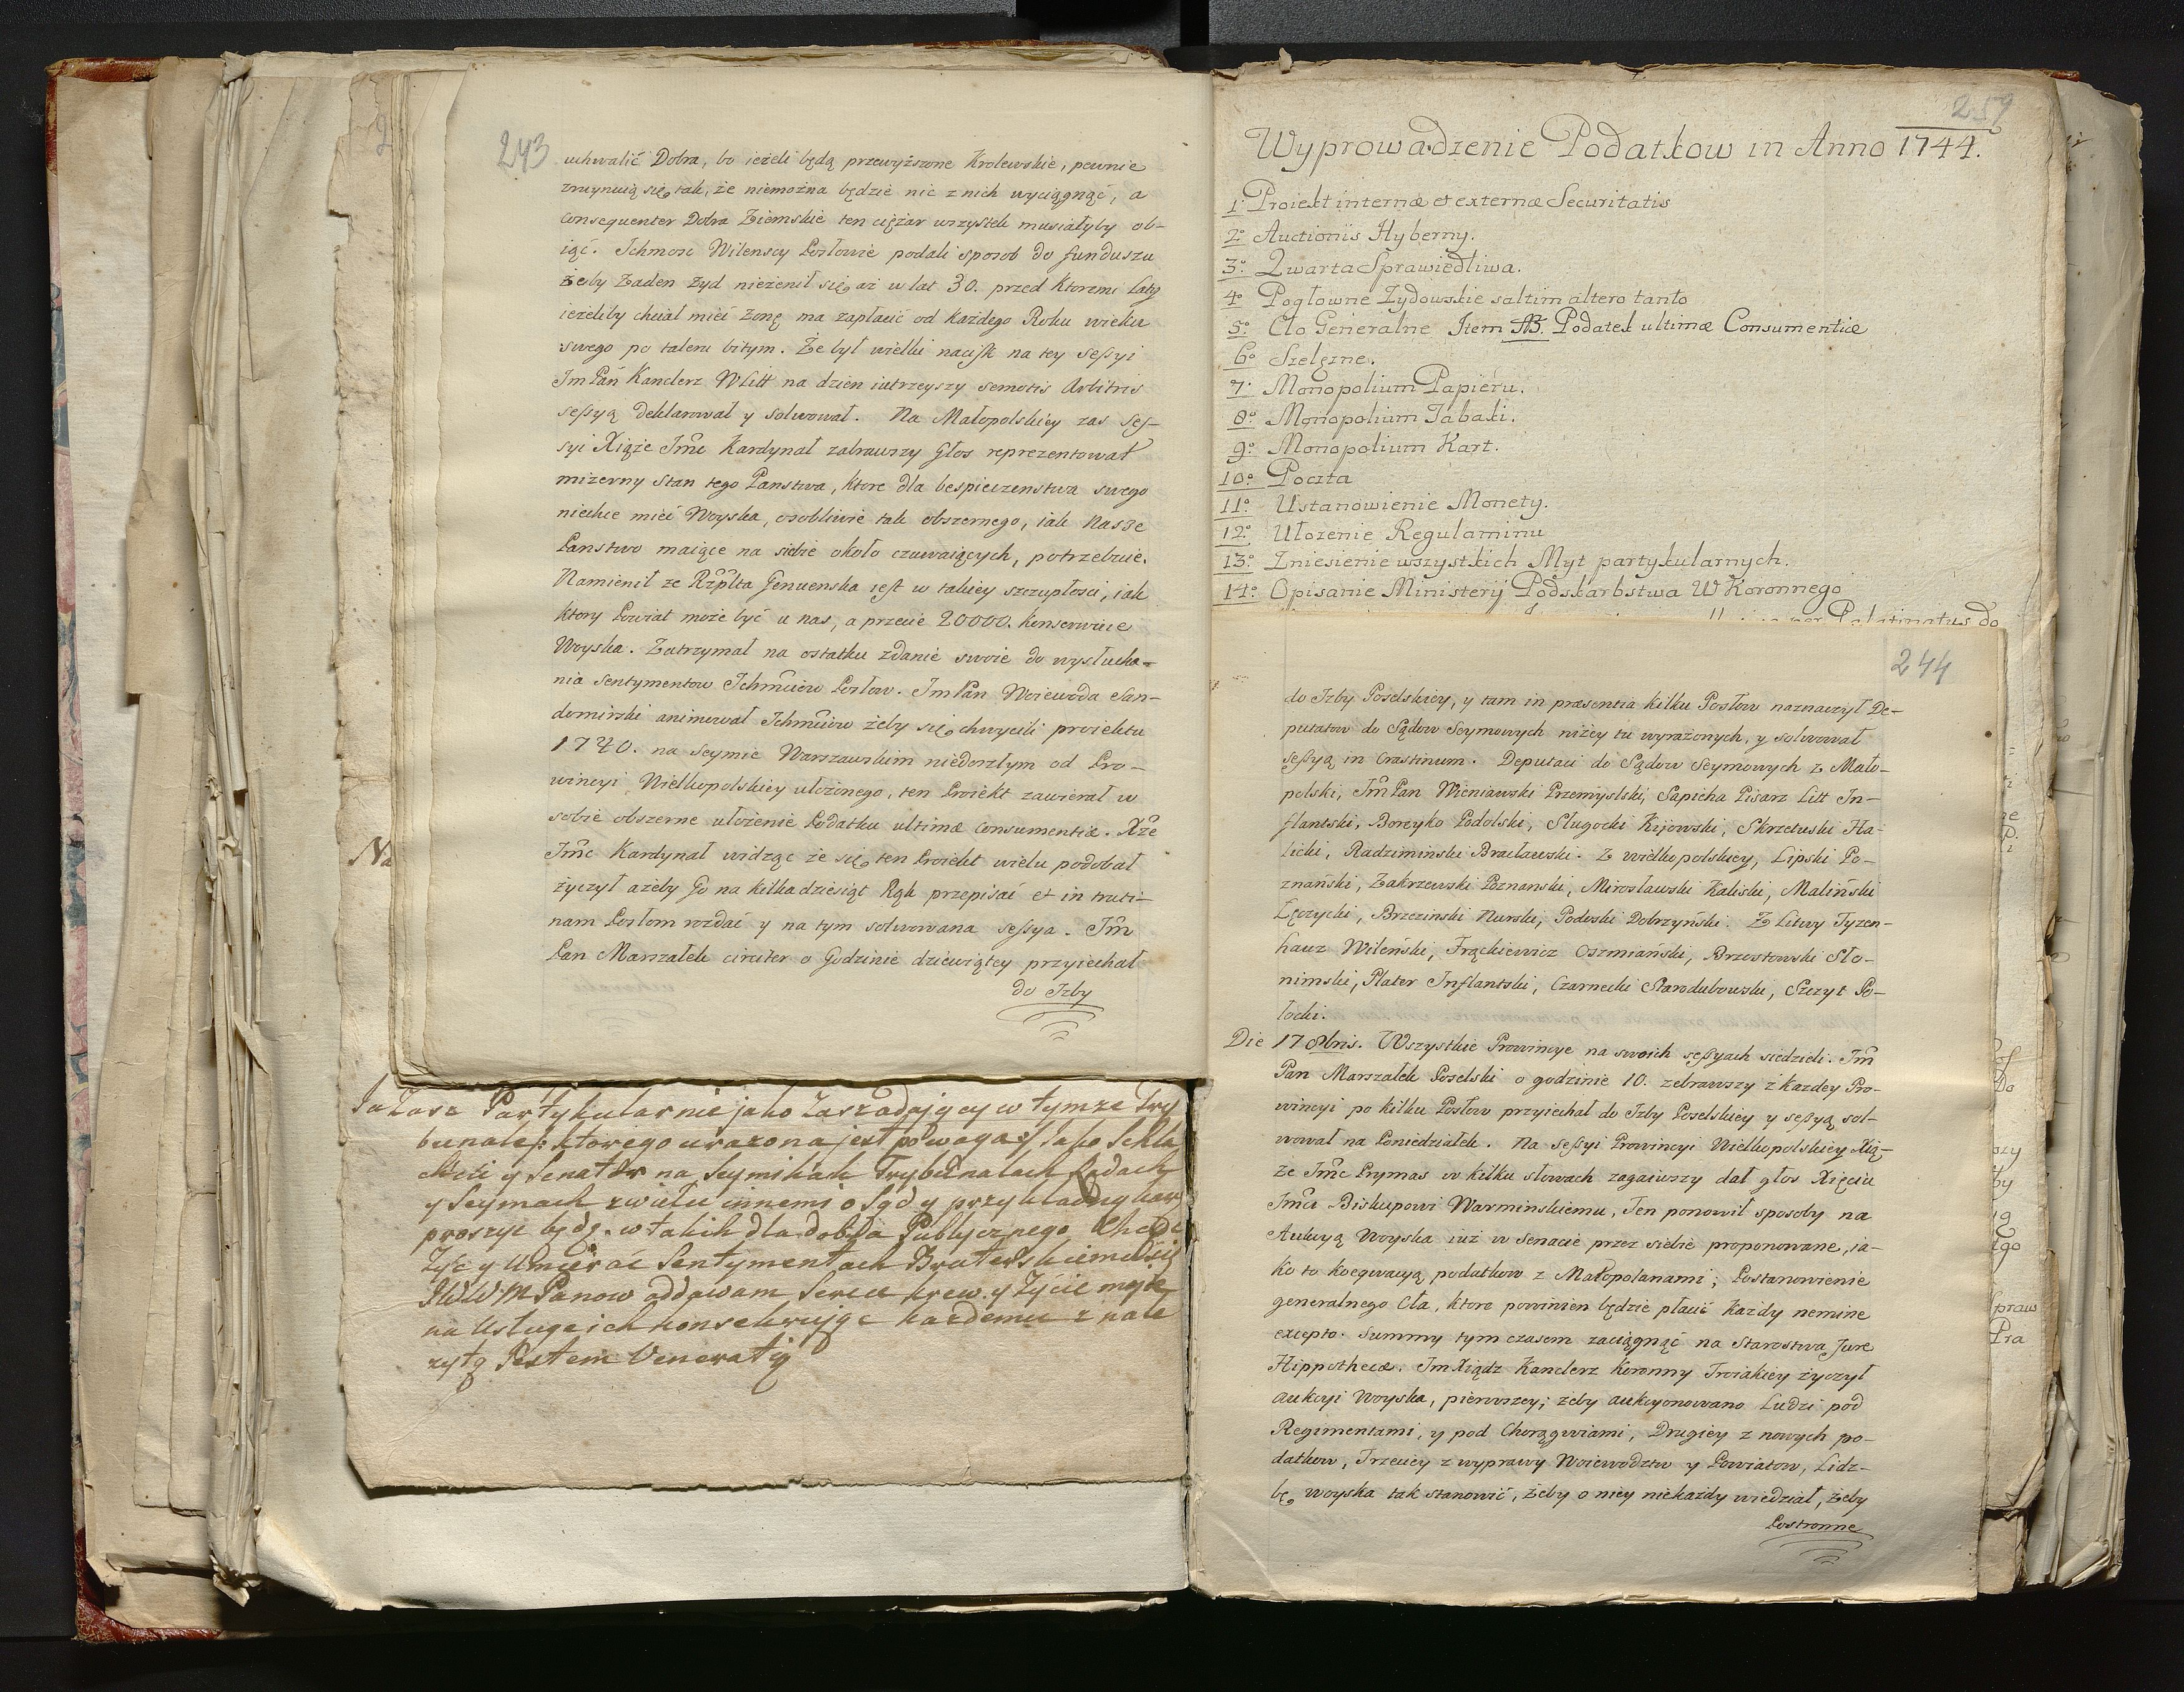 243
uchwalić Dobra, bo ieżeli będą przewyższone Krolewskie, pewnie
zruynuią się tak, że niemożna będzie nic z nich wyciągnąć, a
consequenter Dobra Ziemskie ten ciężar wszystek musiałyby ob-
iąć. Ichmosc Wilenscy Posłowie podali sposob do funduszu
żeby Żaden Żyd nieżenił się aż w lat 30. przed ktoremi laty
ieżeliby chciał mieć żonę ma zapłacić od każdego Roku wieku
swego po taleru bitym. Że był wielki nacisk na tey sessyi
Im Pan Kanclerz W Litt na dzien iutrzeyszy semotis Arbitris
sessyą deklarował y solwował. Na Małopolskiey zas Ses-
syi Xiąże Imc Kardynał zabrawszy Głos reprezentował
mizerny stan tego Panstwa, ktore dla bespieczenstwa swego
niechce mieć Woyska, osobliwie tak obszernego, iak nasze
Panstwo maiące na siebie około czuwaiących, potrzebuie.
Namienił że Rzplta Genuenska iest w takiey szczupłosci, iak
ktory Powiat może być u nas, a przecie 20000. konserwuie
Woyska. Zatrzymał na ostatku zdanie swoie do wysłucha-
nia sentymentow Ichmciow Posłow. Im Pan Woiewoda San-
domirski animował Ichmciow żeby się chwycili proiektu
1740. na Seymie Warszawskim niedoszłym od Pro-
wincyi Wielkopolskiey ułożonego, ten Proiekt zawierał w
sobie obszerne ułożenie Podatku ultimæ consumentiæ. Xże
Imc Kardynał widząc że się ten Proiekt wielu podobał
życzył ażeby Go na kilkadziesiąt Rąk przepisać et in truti-
nam Posłom rozdać y na tym solwowana sessya. Im
Pan Marszałek circiter o Godzinie dziewiątey przyiechał
do Izby
Na
Ja Zasz Partykularnie jako Zaszadający w tymze Try
bunale /: ktorego urazona jest powaga :/ Jako Schla
chcic y Senator na Seymikach Trybunałach Radach
y Seymach zwielu innemi o Sąd y przykładny
proszyc będę. w takich dla dobra Publycznego Chędę
Zyc y Umierać Sentymentach Braterskiemu
JWWM Panow oddawam Serce krew. y Zycie moje
na Usługe ich konsekrując kazdemu z nale
zytą Jestem Veneratią
259
Wyprowadzenie Podatkow in Anno 1744.
1. Proiekt internæ et externæ Securitatis
2º Auctionis Hyberny.
3º Kwarta Sprawiedliwa.
4º Pogłowne Zydowskie saltim altero tanto
5º Cło Generalne Item AB. Podatek ultimæ Consumentiæ
6º Szelęzne.
7º Monopolium Papieru.
8º Monopolium Tabaki.
9º Monopolium Kart.
10º Poczta
11º Ustanowienie Monety.
12º Ułozenie Regulaminu
13º Zniesienie wszystkich Myt partykularnych.
14º Opisanie Ministerij Podskarbstwa W Koronnego
per Palatinatus do
244
do Izby Poselskiey, y tam in præsentia kilku Posłow naznaczył De-
putatow do Sądow Seymowych niżey tu wyrażonych, y solwował
sessyą in Crastinum. Deputaci do Sądow Seymowych z Mało-
polski, Im Pan Wieniawski Przemyslski, Sapieha Pisarz Litt In-
flantski, Boreyko Podolski, Sługocki Kijowski, Skrzetuski Ha-
licki, Radziminski Bracławski. Z wielkopolskiey, Lipski Po-
znański, Zakrzewski Poznanski, Mirosławski Kaliski, Maliński
Łęczycki, Brzezinski Nurski, Podoski Dobrzyński. Z Litwy Tyzen-
hauz Wileński, Frąckiewicz Oszmiański, Brzostowski Sło-
nimski, Plater Inflantski, Czarnecki Starodubowski, Szczyt Po-
łocki.
Die 17 8bris. Wszystkie Prowincye na swoich sessyach siedzieli. Im
Pan Marszałek Poselski o godzinie 10. zebrawszy z każdey Pro-
wincyi po kilku Posłow przyiechał do Izby Poselskiey y sessyą sol-
wował na Poniedziałek. Na sessyi Prowincyi Wielkopolskiey Xią-
że Imc Prymas w kilku słowach zagaiwszy dał głos Xięciu
Imci Biskupowi Warminskiemu, Ten ponowił sposoby na
Aukcyą Woyska iuż w Senacie przez siebie proponowane, ia-
ko to koequacyą podatkow z Małopolanami, Postanowienie
generalnego Cła, ktore powinien będzie płacić każdy nemine
excepto. Summy tym czasem zaciągnąć na Starostwa Jure
Hippothecæ. Im Xiądz Kanclerz Koronny Troiakiey życzył
aukcyi Woyska, pierwszey; żeby aukcyonowano Ludzi pod
Regimentami, y pod Chorągwiami, Drugiey z nowych po-
datkow, Trzeciey z wyprawy Woiewodztw y Powiatow, Lidz-
bę woyska tak stanowić, żeby o niey niekażdy wiedział, żeby
Postronne